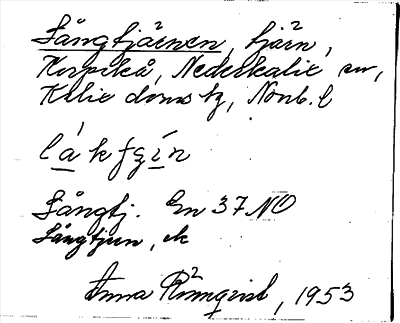 Långtjärnen, tjärn,
Korpikå, Nederkalix sn,
Kalix doms tg, Norrb. l
Långtj. En 37 NO
Långtjärn, ek
Anna Rönnqvist, 1953